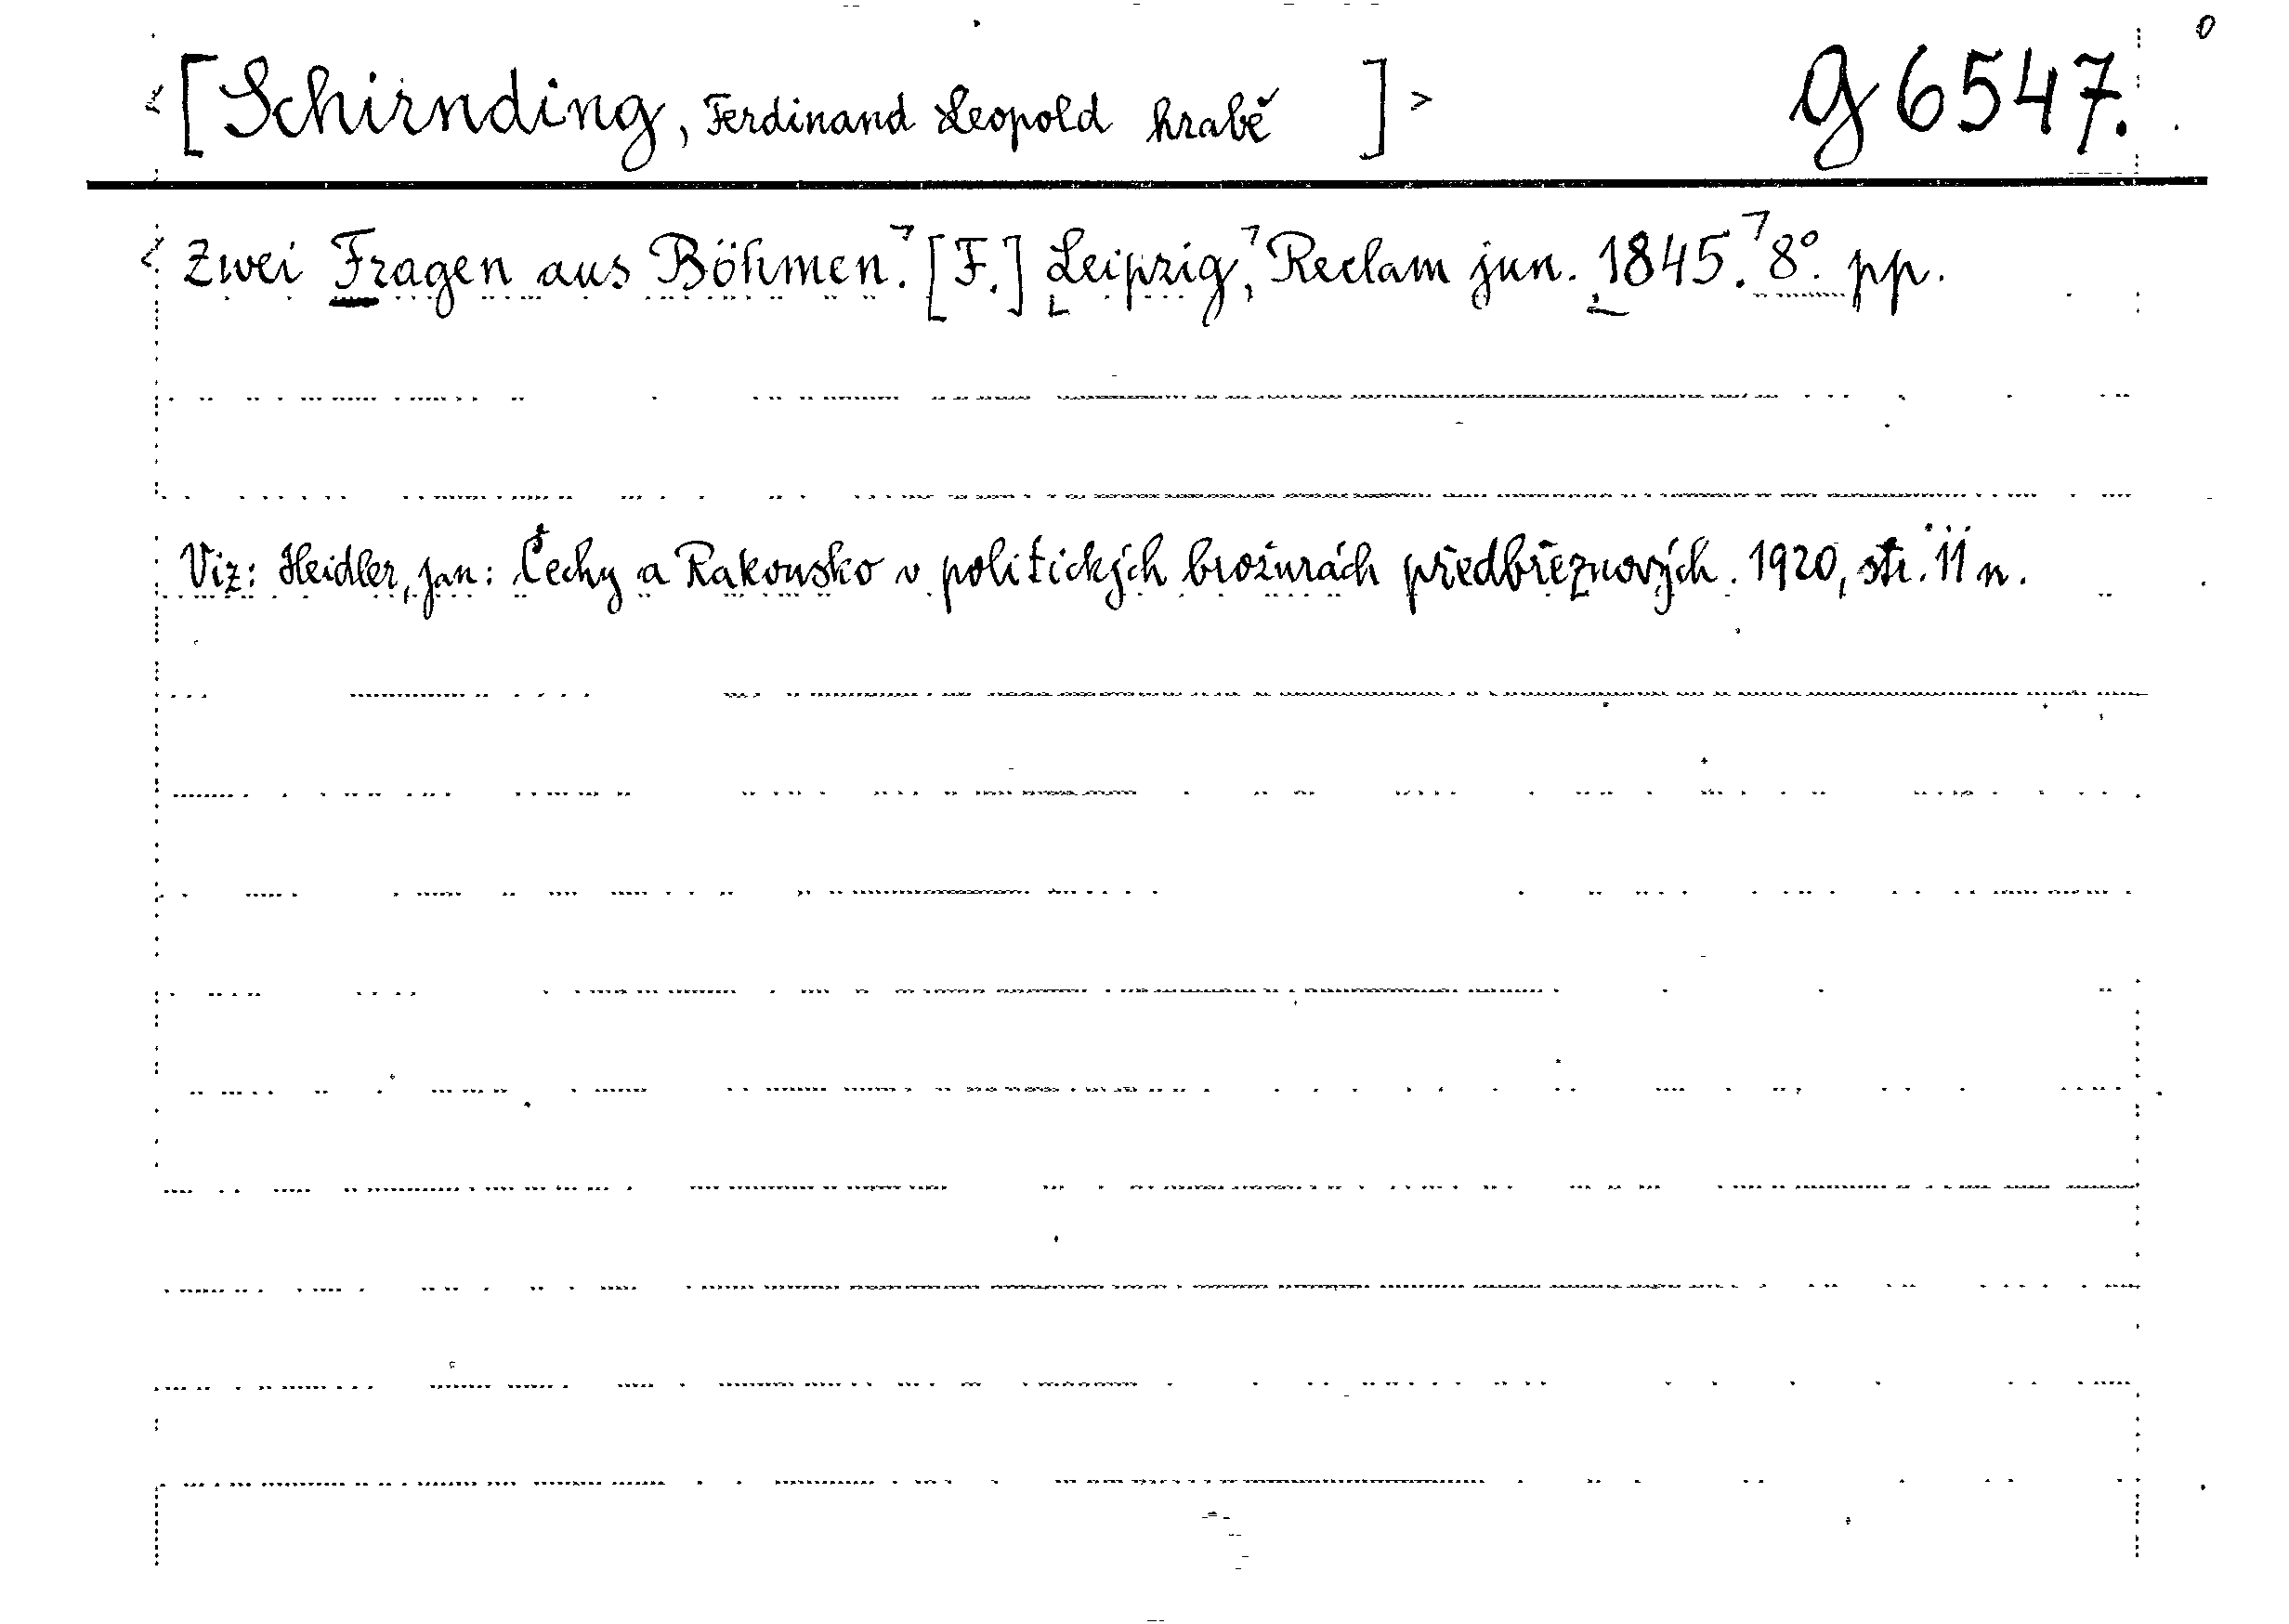 <[Schirnding, Ferdinand Leopold hrabě ]> g 6547.
Zwei Fragen aus Böhmen. [F.] Leipzig, Reclam jun. 1845. 8°. pp.
Viz: Heidler, Jan: Čechy a Rakousko v politických brožurách předbřeznových. 1920, str. 11 n.